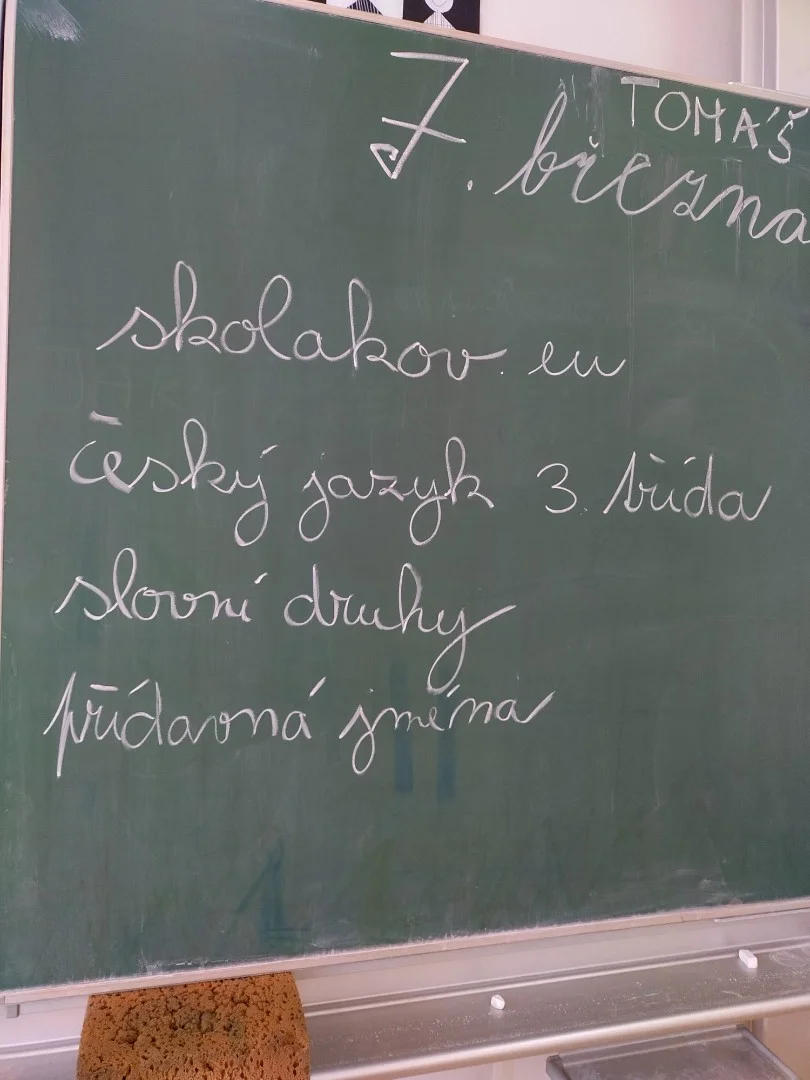 TOMÁŠ
7. března
skolakov.eu
český jazyk 3. třída
slovní druhy
přídavná jména